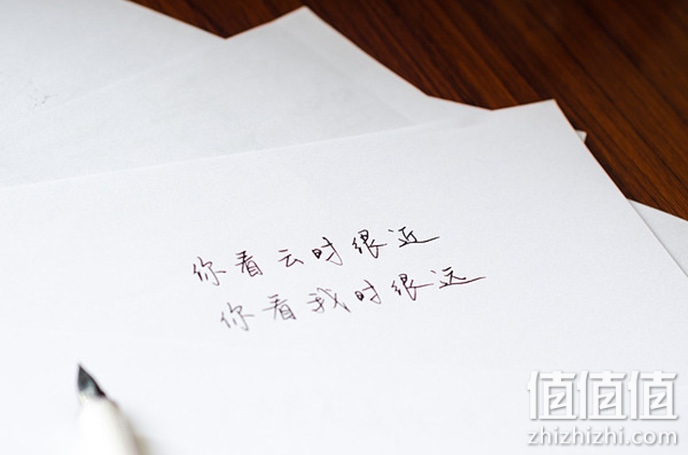 你看云时很近
你看我时很远
值值值
zhizhizhi.com